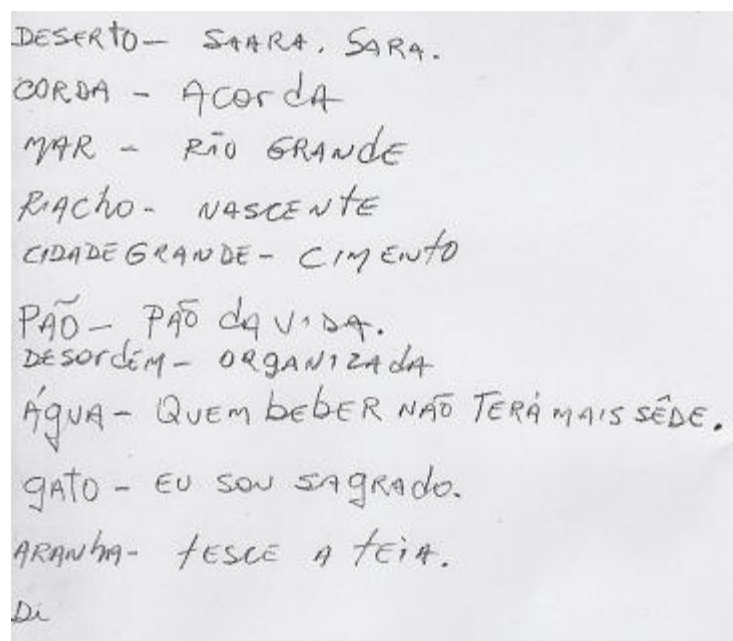 DESERTO - SAARA. SARA.
CORDA - ACORDA
MAR - RIO GRANDE
RIACHO - NASCENTE
CIDADE GRANDE - CIMENTO
PÃO - PÃO DA VIDA.
DESORDEM - ORGANIZADA
ÁGUA - QUEM BEBER NÃO TERÁ MAIS SÊDE.
GATO - EU SOU SAGRADO.
ARANHA - TESCE A TEIA.
Di